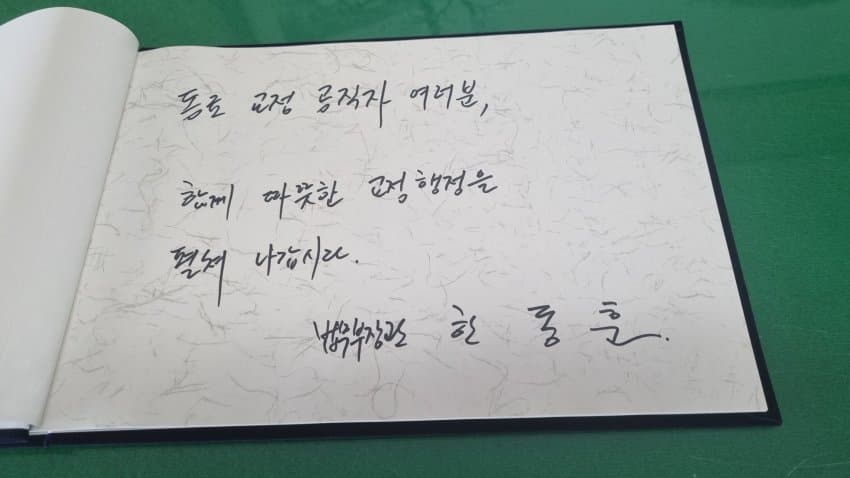 동료 교정 공직자 여러분,
함께 따뜻한 교정행정을
펼쳐 나갑시다.
법무부장관 한 동 훈.